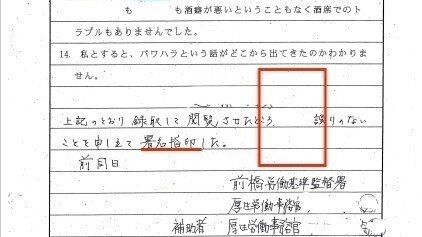 も　も酒癖が悪いということもなく酒席でのト
ラブルもありませんでした。
14. 私とすると、パワハラという話がどこから出てきたのかわかりま
せん。
上記のとおり録取して閲覧させたところ　誤りのない
ことを申し立て署名指印した。
前同日
前橋労働基準監督署
厚生労働事務官
補助者　厚生労働事務官